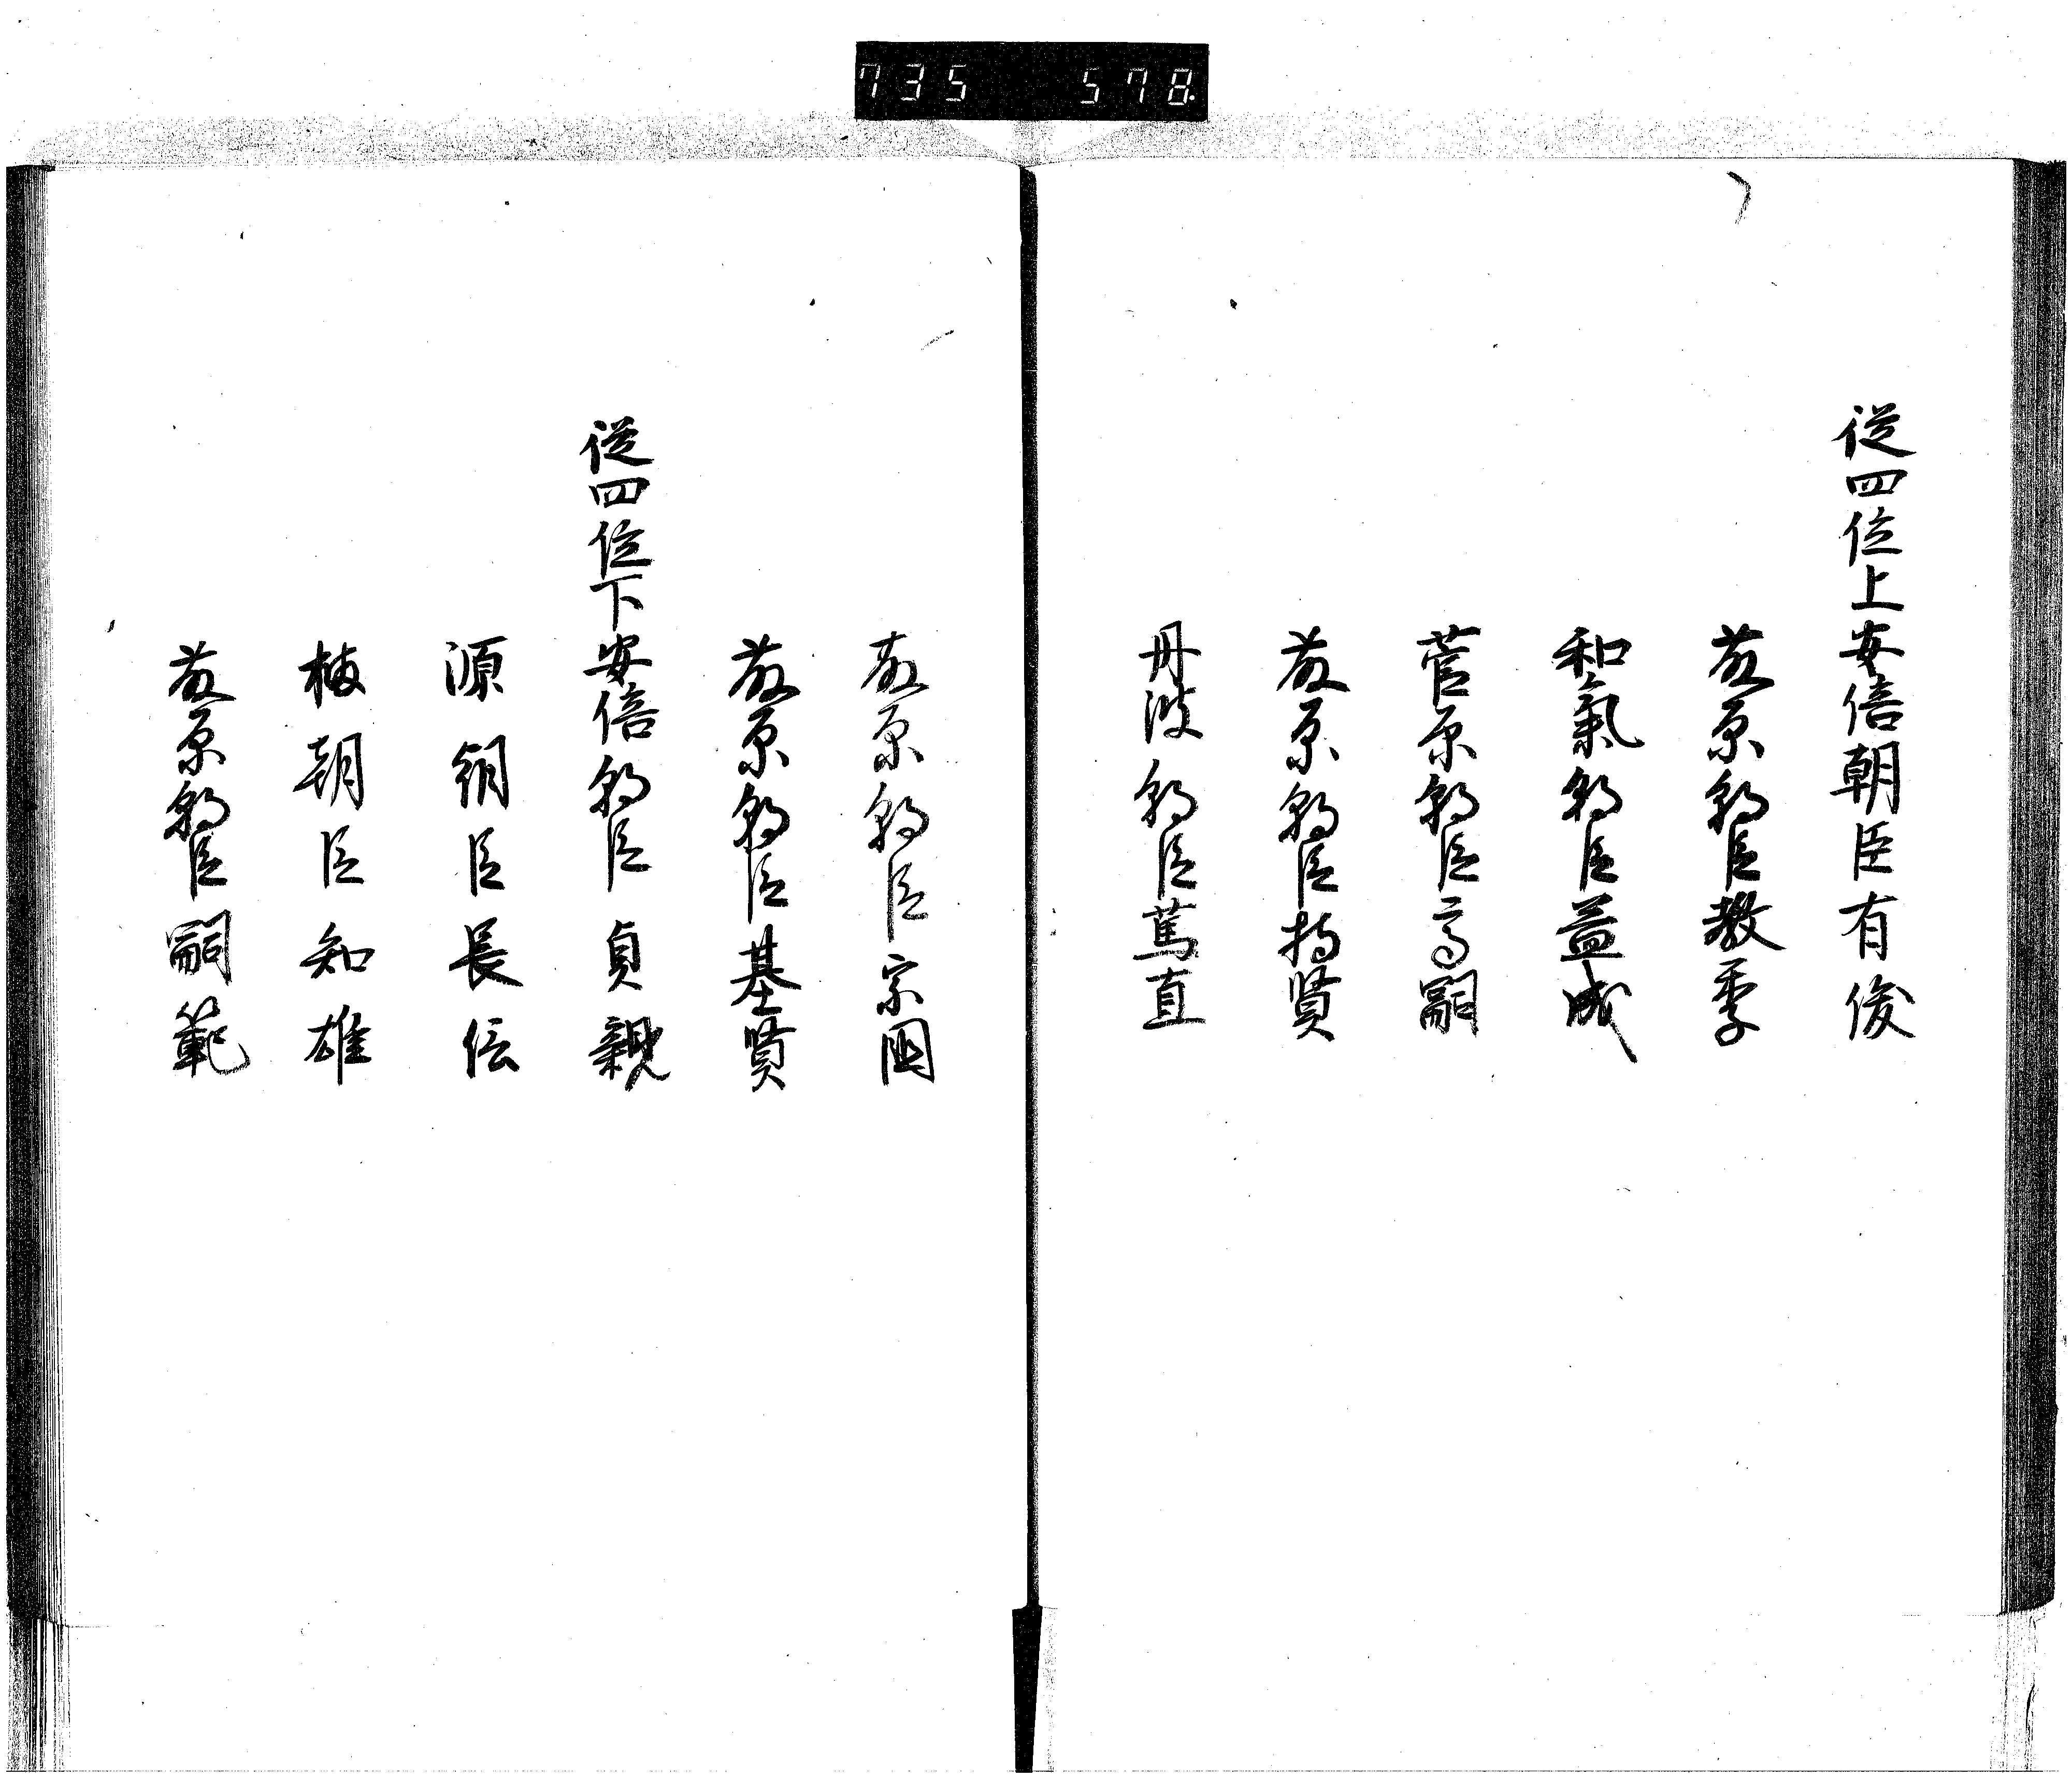 735 578.
従四位上安倍朝臣有俊
藤原朝臣教季
和氣朝臣益成
菅原朝臣高嗣
藤原朝臣持賢
丹波朝臣篤直
藤原朝臣宗国
藤原朝臣基賢
従四位下安倍朝臣貞親
源朝臣長伝
橘朝臣知雄
藤原朝臣嗣範